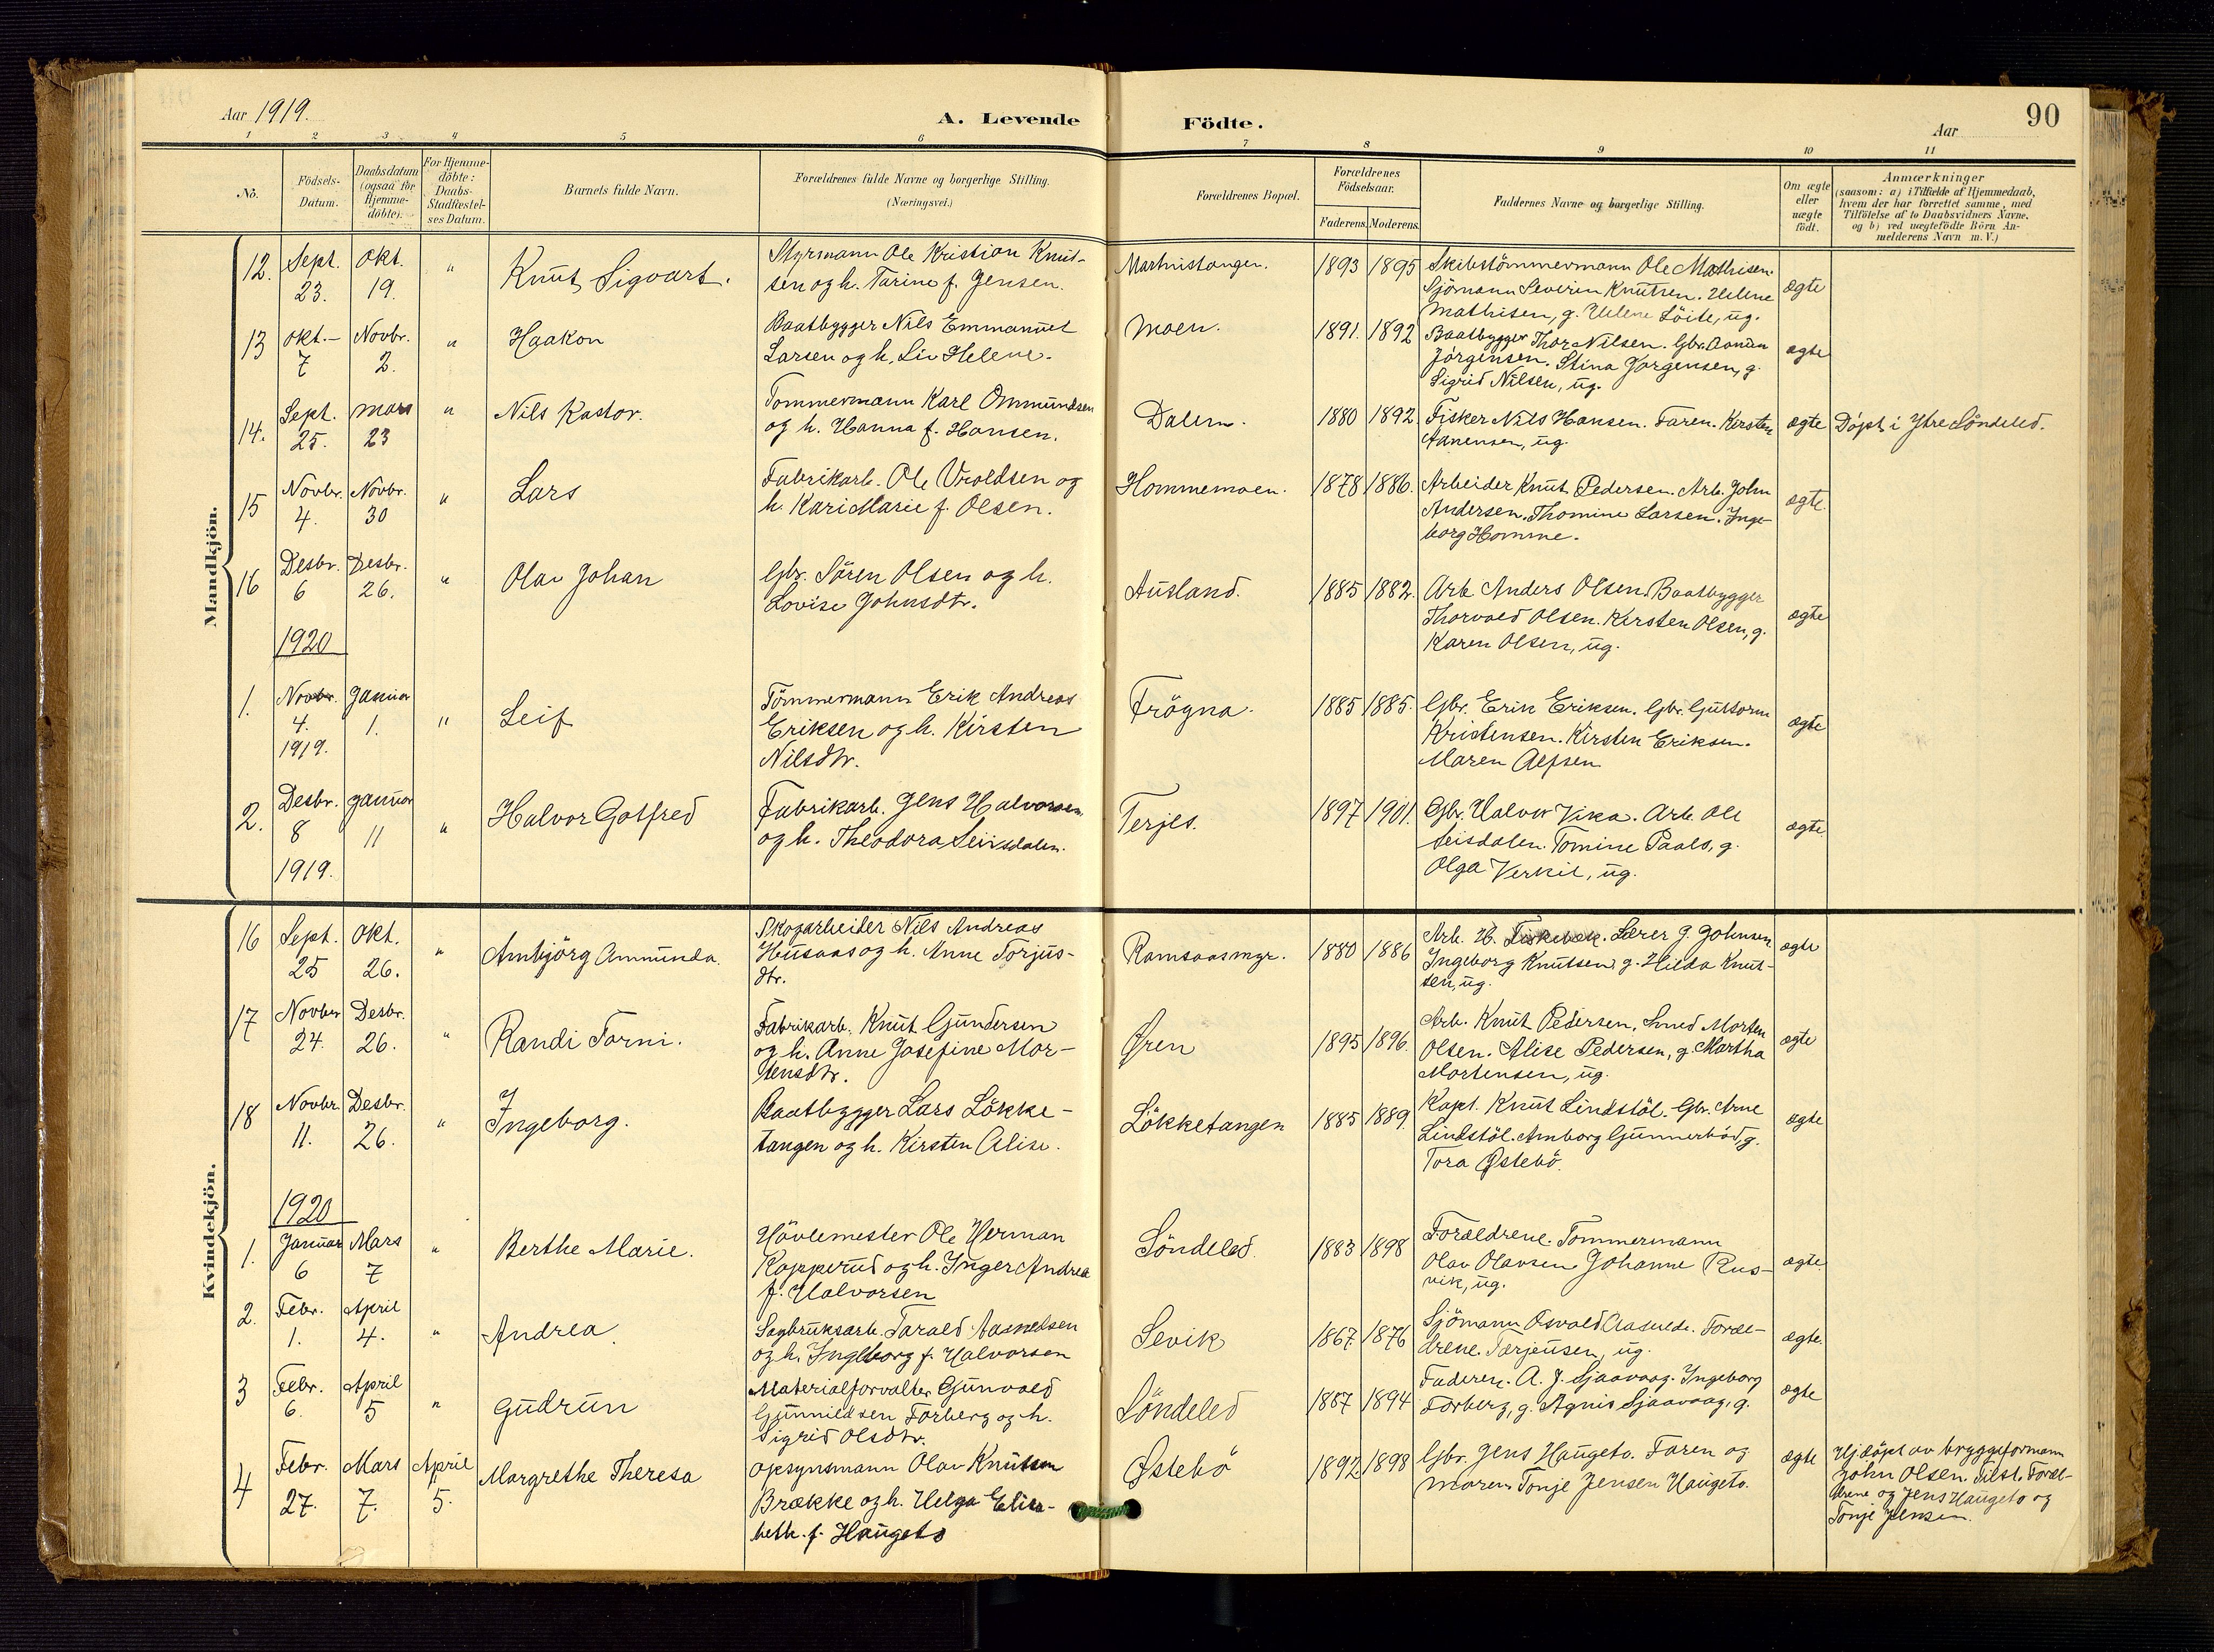 Aar 1919.
A. Levende Födte.
Aar
90
1 2 3 4 5 6 7 8 9 10 11
No.
Födsels-Datum.
Daabsdatum (ogsaa for Hjemme-döbte).
For Hjemme-döbte: Daabs-Stadfæstel-ses Datum.
Barnets fulde Navn.
Forældrenes fulde Navne og borgerlige Stilling.
(Næringsvei.)
Forældrenes Bopæl.
Forældrenes Födselsaar.
Faderens. Moderens.
Faddernes Navne og borgerlige Stilling.
Om ægte eller uægte födt.
Anmærkninger
(saasom: a) i Tilfælde af Hjemmedaab, hvem der har forrettet samme, med Tilföielse af to Daabsvidners Navne. og b) ved uægtefödte Börn Anmelderens Navn m. V.)
Mandkjön.
12. Sept. 23. Okt. 19. " Knut Sigvart.
Styrmann Ole Kristian Knut-
sen og h. Tarine f. Jensen.
Marthistangen. 1893 1895
Skibstömmermann Ole Mathisen.
Sjömann Severin Knutsen. Helene
Mathisen, g. Helene Löite, ug.
ægte
13 Okt. 7 Novbr. 2. " Haakon
Baatbygger Nils Emmanuel
Larsen og h. Liv Helene.
Moen. 1891. 1892
Baatbygger Thor Nilsen. Gbr. Aanun
Jörgensen. Stina Jörgensen, g.
Sigrid Nilsen, ug.
ægte
14. Sept. 25. mars 23 " Nils Kastor.
Tommermann Karl Ommundsen
og h. Hanna f. Hansen.
Dalen. 1880 1892.
Fisker Nils Hansen. Faren. Kirsten
Aanensen, ug.
ægte
Döpt i Ytre Söndeled.
15 Novbr. 4. Novbr. 30 " Lars
Fabrikarb. Ole Vroldsen og
h. Kari Marie f. Olsen.
Hommemoen. 1878 1886.
Arbeider Knut Pedersen. Arb. John
Andersen. Thomine Larsen. Inge-
borg Homme.
ægte.
16 Desbr. 6 Desbr. 26. " Olav Johan
Gbr. Sören Olsen og h.
Lovise Johnsdtr.
Ausland. 1885 1882.
Arb Anders Olsen. Baatbygger
Thorvald Olsen. Kirsten Olsen, g.
Karen Olsen, ug.
ægte
1920
1. Novbr. 4. 1919. Januar 1. " Leif
Tömmermann Erik Andreas
Eriksen og h. Kirsten
Nilsdtr.
Frögna. 1885 1885.
Gbr. Erik Eriksen. Gbr. Guttorm
Kristensen. Kirsten Eriksen.
Maren Alfsen
ægte
2. Desbr. 8 1919. Januar 11 " Halvor Gotfred
Fabrikarb. Jens Halvorsen
og h. Theodora Leivsdalen.
Terjes. 1897 1901.
Gbr. Halvor Vika. Arb. Ole
Leisdalen. Tomine Paals, g.
Olga Verkil, ug.
ægte.
Kvindekjön.
16 Sept. 25 Okt. 26. " Ambjörg Ammunda.
Skogarbeider Nils Andreas
Husaas og h. Anne Torjus-
dtr.
Ramsaasmyr. 1880 1886
Arb. H. Fiskebæk. Lærer J. Johnsen
Ingeborg Knutsen, g. Hilda Knut-
sen, ug.
ægte
17 Novber 24. Desbr. 26. " Randi Torni.
Fabrikarb. Knut Gundersen
og h. Anne Josefine Mor-
tensdtr.
Øren 1895 1896.
Arb. Knut Pedersen, Smed Morten
Olsen. Alise Pedersen, g. Martha
Mortensen, ug.
ægte
18 Novbr. 11. Desbr. 26. " Ingeborg.
Baatbygger Lars Lökke-
tangen og h. Kirsten Alise.
Lökketangen 1885 1889.
Kapt. Knut Lindstöl. Gbr. Arne
Lindstöl. Amborg Gunnerböd, g.
Tora Östebö.
ægte
1920
1. Januar 6 Mars 7 " Berthe Marie.
Hövlemester Ole Herman
Kopperud og h. Inger Andrea
f. Halvorsen
Söndeled. 1883 1898
Forældrene. Tommermann
Olav Olavsen Johanne Rus-
vik, ug.
ægte.
2. Febr. 1. April 4. " Andrea.
Sagbruksarb. Tarald Aasneldsen
og h. Ingeborg f. Halvorsen
Sevik 1867 1876
Sjömann Osvald Aasnelds. Foræl-
drene. Tarjeusen, ug.
ægte.
3 Febr. 6. April 5 " Gudrun
Materialforvalter Gunvald
Gunnildsen Forberg og h.
Sigrid Olsdtr.
Söndeled 1887 1894
Faderen. A. J. Sjaavaag. Ingeborg
Forberg, g. Agnis Sjaavaag, g.
ægte
4 Febr. 27. Mars 7. April 5. Margrethe Theresa
Opsynsmann Olav Knutsen
Brække og h. Helga Elisa-
beth. f. Haugeto
Östebö 1892 1898
Gbr. Jens Haugeto. Faren og
moren. Tonje Jensen Haugeto.
ægte
Hjdöpt av bryggeformann
John Olsen. Tilst. Foræl-
drene og Jens Haugeto og
Tonje Jensen.